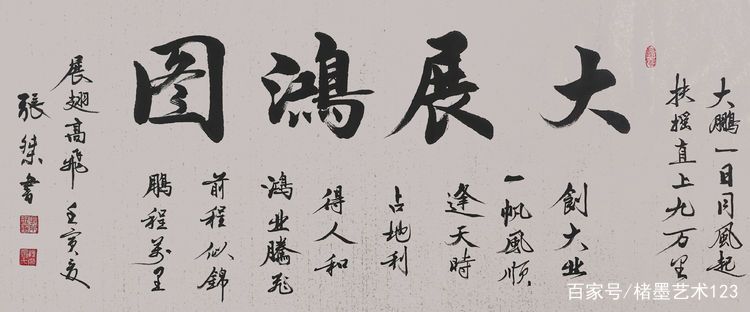 大鹏一日同风起
扶摇直上九万里
大展鴻图
創大业
一帆風順
逢天時
占地利
得人和
鴻业騰飞
前程似錦
鹏程万里
展翅高飛 壬寅夏
張傑書
百家号/楮墨艺术123